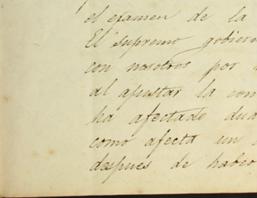 el examen de la
El supremo gobier
con nosotros por
al ajustar la con
ha afectado dua
como afecta un
despues de haber